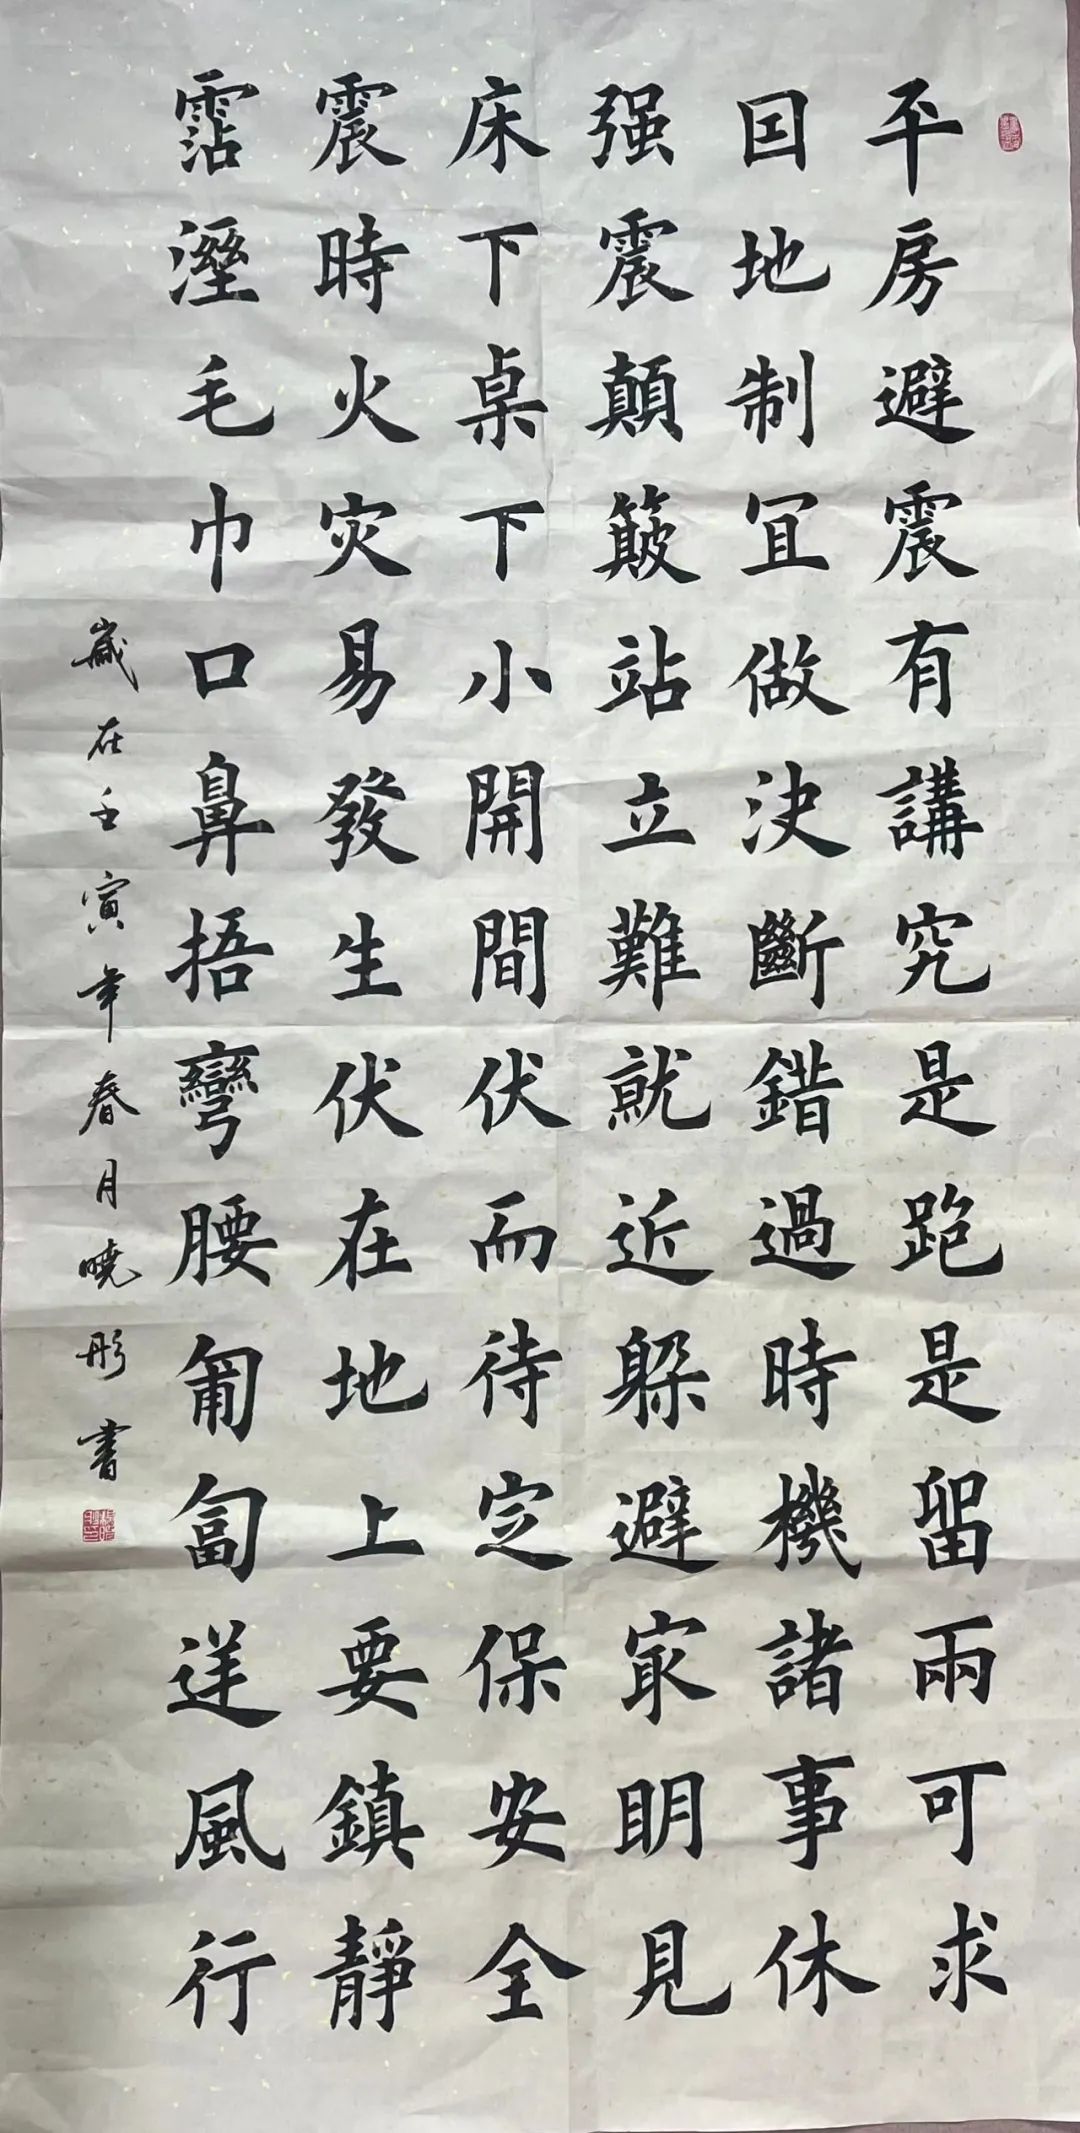 平房避震有講究是跑是留兩可求
因地制宜做决斷錯過時機諸事休
强震顛簸站立難就近躲避最明見
床下桌下小開間伏而待定保安全
震時火灾易發生伏在地上要鎮靜
霑溼毛巾口鼻捂彎腰匍匐逆風行
歲在壬寅年春月曉彤書